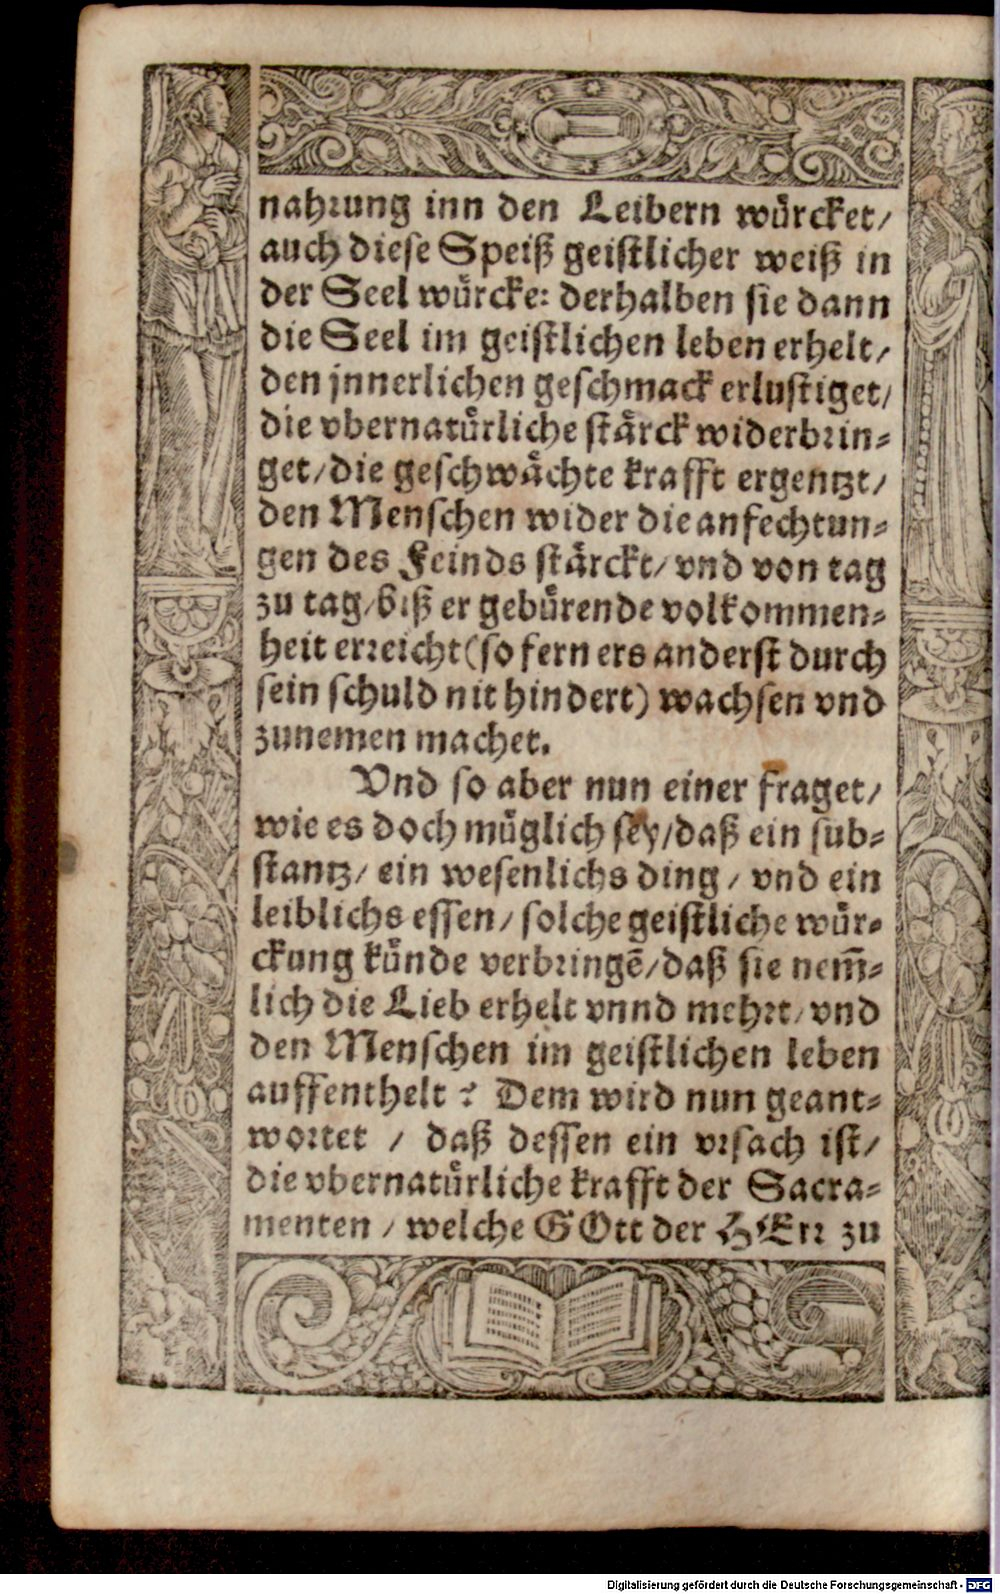 nahrung inn den Leibern wuͤrcket/
auch diese Speiß geistlicher weiß in
der Seel wuͤrcke: derhalben sie dann
die Seel im geistlichen leben erhelt/
den jnnerlichen geschmack erlustiget/
die vbernatuͤrliche staͤrck widerbrin-
get/die geschwaͤchte krafft ergentzt/
den Menschen wider die anfechtun-
gen des Feinds staͤrckt/ vnd von tag
zu tag/biß er gebuͤrende volkommen-
heit erreicht(so fern ers anderst durch
sein schuld nit hindert) wachsen vnd
zunemen machet.
Vnd so aber nun einer fraget/
wie es doch muͤglich sey/daß ein sub-
stantz/ ein wesenlichs ding/ vnd ein
leiblichs essen/ solche geistliche wuͤr-
ckung kuͤnde verbringē/daß sie nem̄-
lich die Lieb erhelt vnnd mehrt/ vnd
den Menschen im geistlichen leben
auffenthelt? Dem wird nun geant-
wortet / daß dessen ein vrsach ist/
die vbernatuͤrliche krafft der Sacra-
menten/ welche GOtt der HErr zu
Digitalisierung gefördert durch die Deutsche Forschungsgemeinschaft - DFG